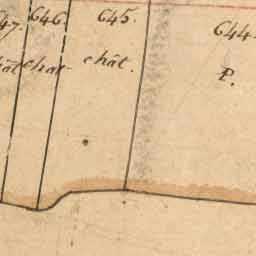 47. 646. 645. 644.
hât chât. chât. P.